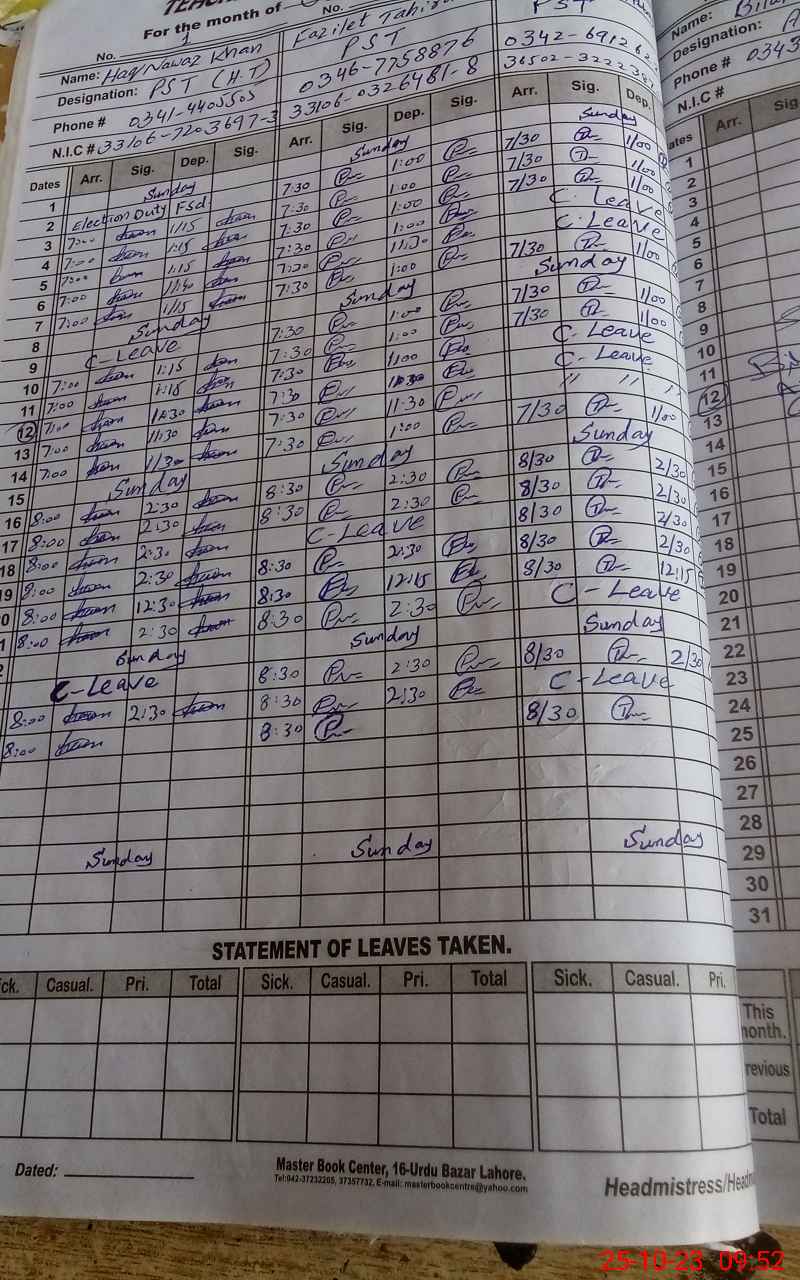 For the month of
No. 1 No.
Name: Haq Nawaz Khan Fazilet Tahira Name:
Designation: PST (H.T) PST PST Designation:
Phone # 0341-4405505 0346-7758876 Phone # 0343
N.I.C # 33106-7203697-3 33106-0326481-8 N.I.C #
Dates Arr. Sig. Dep. Sig. Arr. Sig. Dep. Sig. Arr. Sig. Dep. Arr. Sig
1 Sunday Sunday Sunday 1
2 Election Duty Fsd. 7:30 1:00 7/30 1/00 2
3 7:00 1:15 7:30 1:00 7/30 1/00 3
4 7:00 1:15 7:30 1:00 7/30 1/00 4
5 7:00 1:15 7:30 1:00 C. Leave 5
6 7:00 7:30 C. Leave 6
7 7:00 1:15 7:30 1:00 7/30 1/00 7
8 Sunday Sunday Sunday 8
9 C-Leave 7:30 1:00 7/30 1/00 9
10 7:00 1:15 7:30 1:00 7/30 1/00 10
11 7:00 1:15 7:30 1:00 C-Leave 11
12 7:00 7:30 C-Leave 12
13 7:00 11:30 7:30 11:30 " " " 13
14 7:00 11/30 7:30 1:00 7/30 1/00 14
15 Sunday Sunday Sunday 15
16 8:00 2:30 8:30 2:30 8/30 2/30 16
17 8:00 2:30 8:30 2:30 8/30 2/30 17
18 8:00 2:30 C-Leave 8/30 2/30 18
19 8:00 2:30 8:30 2:30 8/30 2/30 19
8:00 12:30 8:30 12:15 8/30 12:15 20
8:00 2:30 8:30 2:30 C-Leave 21
Sunday Sunday Sunday 22
C-Leave 8:30 2:30 8/30 2/30 23
8:00 2:30 8:30 2:30 C-Leave 24
8:00 8:30 8/30 25
26
27
28
Sunday Sunday Sunday 29
30
31
STATEMENT OF LEAVES TAKEN.
ck. Casual. Pri. Total Sick. Casual. Pri. Total Sick. Casual. Pri.
This month.
revious
Total
Dated:
Master Book Center, 16-Urdu Bazar Lahore.
Tel:042-37232205, 37357732, E-mail: masterbookcentre@yahoo.com
Headmistress/Head
25-10-23 09:52